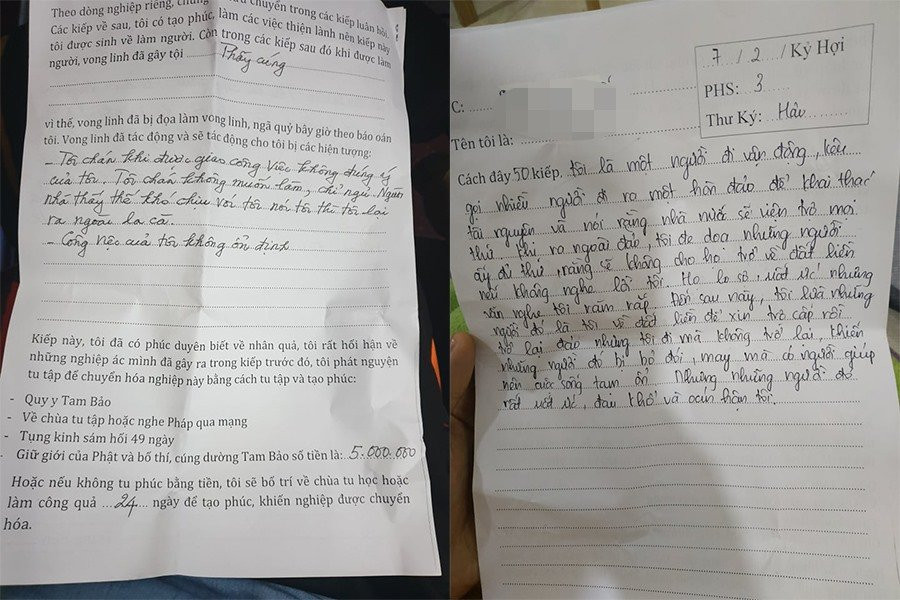 Theo dòng nghiệp riêng, chúng chuyển trong các kiếp luân hồi.
Các kiếp về sau, tôi có tạo phúc, làm các việc thiện lành nên kiếp này
tôi được sinh về làm người. Còn trong các kiếp sau đó khi được làm
người, vong linh đã gây tội Thầy cúng
vì thế, vong linh đã bị đọa làm vong linh, ngã quỷ bây giờ theo báo oán
tôi. Vong linh đã tác động và sẽ tác động cho tôi bị các hiện tượng:
- Tôi chán khi được giao công việc không đúng ý
của tôi. Tôi chán không muốn làm, chỉ nghỉ. Người
nhà thấy thế khó chịu với tôi nói tôi thì tôi lại
ra ngoài la cà.
- Công việc của tôi không ổn định
Kiếp này, tôi đã có phúc duyên biết về nhân quả, tôi rất hối hận về
những nghiệp ác mình đã gây ra trong kiếp trước đó, tôi phát nguyện
tu tập để chuyển hóa nghiệp này bằng cách tu tập và tạo phúc:
- Quy y Tam Bảo
- Về chùa tu tập hoặc nghe Pháp qua mạng
- Tụng kinh sám hối 49 ngày
- Giữ giới của Phật và bố thí, cúng dường Tam Bảo số tiền là: 5.000.000
Hoặc nếu không tu phúc bằng tiền, tôi sẽ bố trí về chùa tu học hoặc
làm công quả 24 ngày để tạo phúc, khiến nghiệp được chuyển
hóa.
7 / 2 / Kỷ Hợi
PHS: 3
Thư Ký: Hậu
C:
Tên tôi là:
Cách đây 50 kiếp, tôi là một người đi vận động, kêu
gọi nhiều người đi ra một hòn đảo để khai thác
tài nguyên và nói rằng nhà nước sẽ viện trợ mọi
thứ. Khi ra ngoài đảo, tôi đe dọa những người
ấy đủ thứ, rằng sẽ không cho họ trở về đất liền
nếu không nghe lời tôi. Họ lo sợ, uất ức nhưng
vẫn nghe tôi răm rắp. Đến sau này, tôi lừa những
người đó là tôi về đất liền để xin trợ cấp rồi
trở lại đảo nhưng tôi đi mà không trở lại, khiến
những người đó bị bỏ đói, may mà có người giúp
nên cuộc sống tạm ổn. Nhưng những người đó
rất uất ức, đau khổ và oán hận tôi.